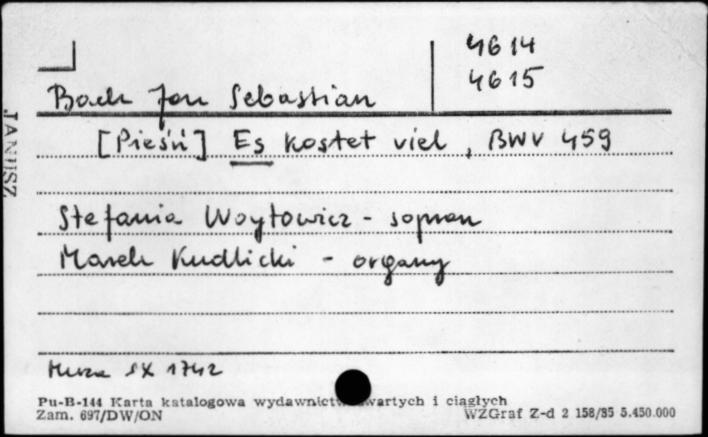 4614
4615
Bach Jan Sebastian
[Pieśń] Es kostet viel, BWV 459
Stefania Woytowicz - sopran
Marek Kudlicki - organy
Muza SX 1742
Pu-B-144 Karta katalogowa wydawnictw zwartych i ciągłych
Zam. 697/DW/ON
WZGraf Z-d 2 158/85 5.450.000
JANUSZ